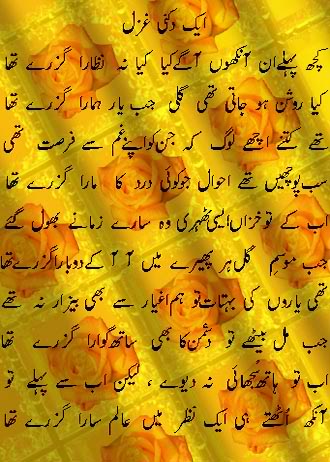 ایک دکنی غزل
کچھ پہلے ان آنکھوں آگے کیا کیا نہ نظارا گزرے تھا
کیا روشن ہو جاتی تھی گلی جب یار ہمارا گزرے تھا
تھے کتنے اچھے لوگ کہ جن کو اپنے غم سے فرصت تھی
سب پوچھیں تھے احوال جو کوئی درد کا مارا گزرے تھا
اب کے تو خزاں ایسی ٹھہری وہ سارے زمانے بھول گئے
جب موسمِ گل ہر پھیرے میں آ آ کے دوبارا گزرے تھا
تھی یاروں کی بہتات تو ہم اغیار سے بھی بیزار نہ تھے
جب مل بیٹھے تو دشمن کا بھی ساتھ گوارا گزرے تھا
اب تو ہاتھ سجھائی نہ دیوے ، لیکن اب سے پہلے تو
آنکھ اُٹھتے ہی ایک نظر میں عالم سارا گزرے تھا